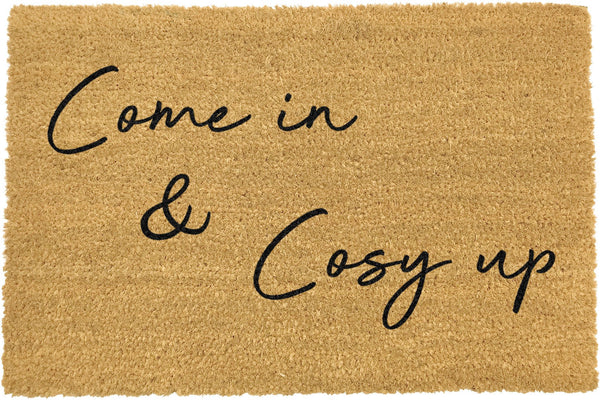 Come in
&
Cosy up